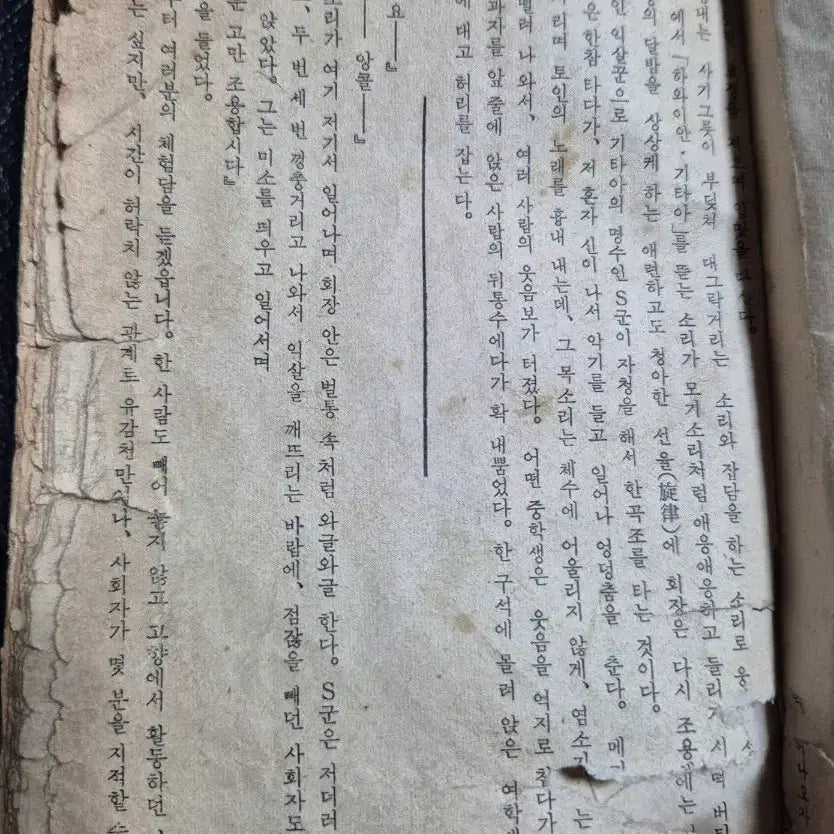 입맛을 다신다.
내는 사기그릇이 부딪쳐 대그락거리는 소리와 잡담을 하는 소리로 웅
에서 「하와이안·기타아」를 뜯는 소리가 모기소리처럼 애응애응하고 들리기 시
의 달밤을 상상케 하는 애련하고도 청아한 선율(旋律)에 회장은 다시 조용
인 익살꾼으로 기타아의 명수인 S군이 자청을 해서 한곡조를 타는 것이다.
은 한참 타다가, 저 혼자 신이 나서 악기를 들고 일어나 엉덩춤을 춘다.
리며 토인의 노래를 흉내 내는데, 그 목소리는 체수에 어울리지 않게, 염소
떨려 나와서, 여러 사람의 웃음보가 터졌다. 어떤 중학생은 웃음을 억지로 참다가
과자를 앞 줄에 앉은 사람의 뒤통수에다가 확 내뿜었다. 한 구석에 몰려 앉은 여학
에 대고 허리를 잡는다.
요――』
――앙콜――』
소리가 여기 저기서 일어나며 회장 안은 벌통 속처럼 와글와글 한다. S군은 저더러
두 번 세 번 껑충거리고 나와서 익살을 깨뜨리는 바람에, 점잖을 빼던 사회자도
앉았다. 그는 미소를 띄우고 일어서며
고만 조용합시다』
을 들었다.
터 여러분의 체험담을 듣겠읍니다. 한 사람도 빼어 놓지 않고 고향에서 활동하던
는 싶지만, 시간이 허락치 않는 관계로 유감천만 사회자가 몇 분을 지적할